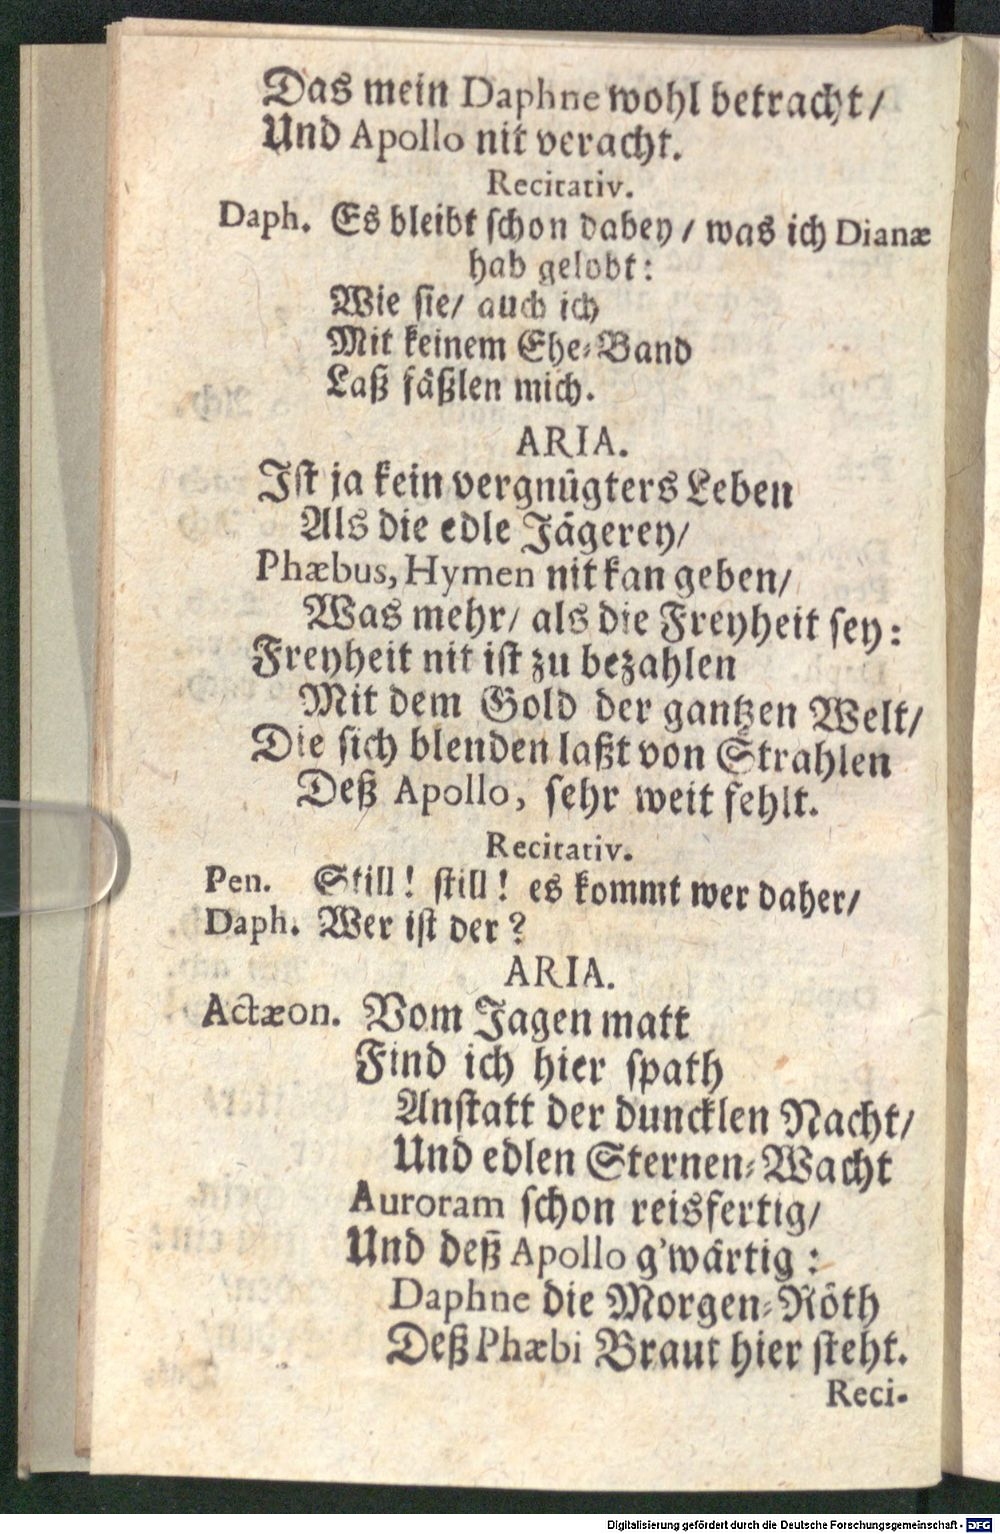 Das mein Daphne wohl betracht /
Und Apollo nit veracht.
Recitativ.
Daph. Es bleibt schon dabey / was ich Dianæ
hab gelobt:
Wie sie / auch ich
Mit keinem Ehe-Band
Laß fäßlen mich.
ARIA.
Ist ja kein vergnügters Leben
Als die edle Jägerey /
Phæbus, Hymen nit kan geben /
Was mehr / als die Freyheit sey:
Freyheit nit ist zu bezahlen
Mit dem Gold der gantzen Welt /
Die sich blenden laßt von Strahlen
Deß Apollo, sehr weit fehlt.
Recitativ.
Pen. Still! still! es kommt wer daher /
Daph. Wer ist der?
ARIA.
Actæon. Vom Jagen matt
Find ich hier spath
Anstatt der duncklen Nacht /
Und edlen Sternen-Wacht
Auroram schon reisfertig /
Und deß Apollo g'wärtig:
Daphne die Morgen-Röth
Deß Phæbi Braut hier steht.
Reci-
Digitalisierung gefördert durch die Deutsche Forschungsgemeinschaft - DFG